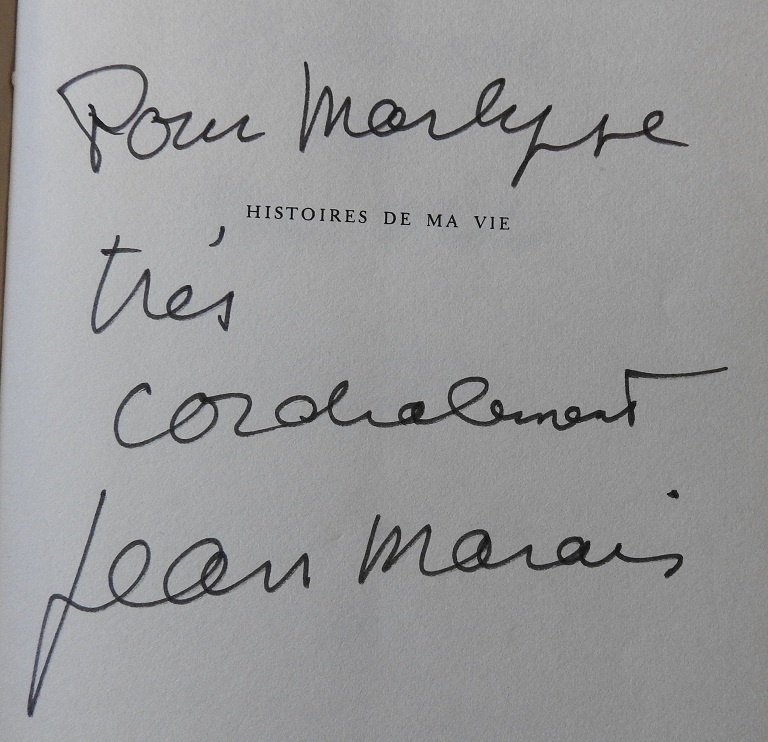 Pour Marlysse
HISTOIRES DE MA VIE
très
cordialement
Jean Marais